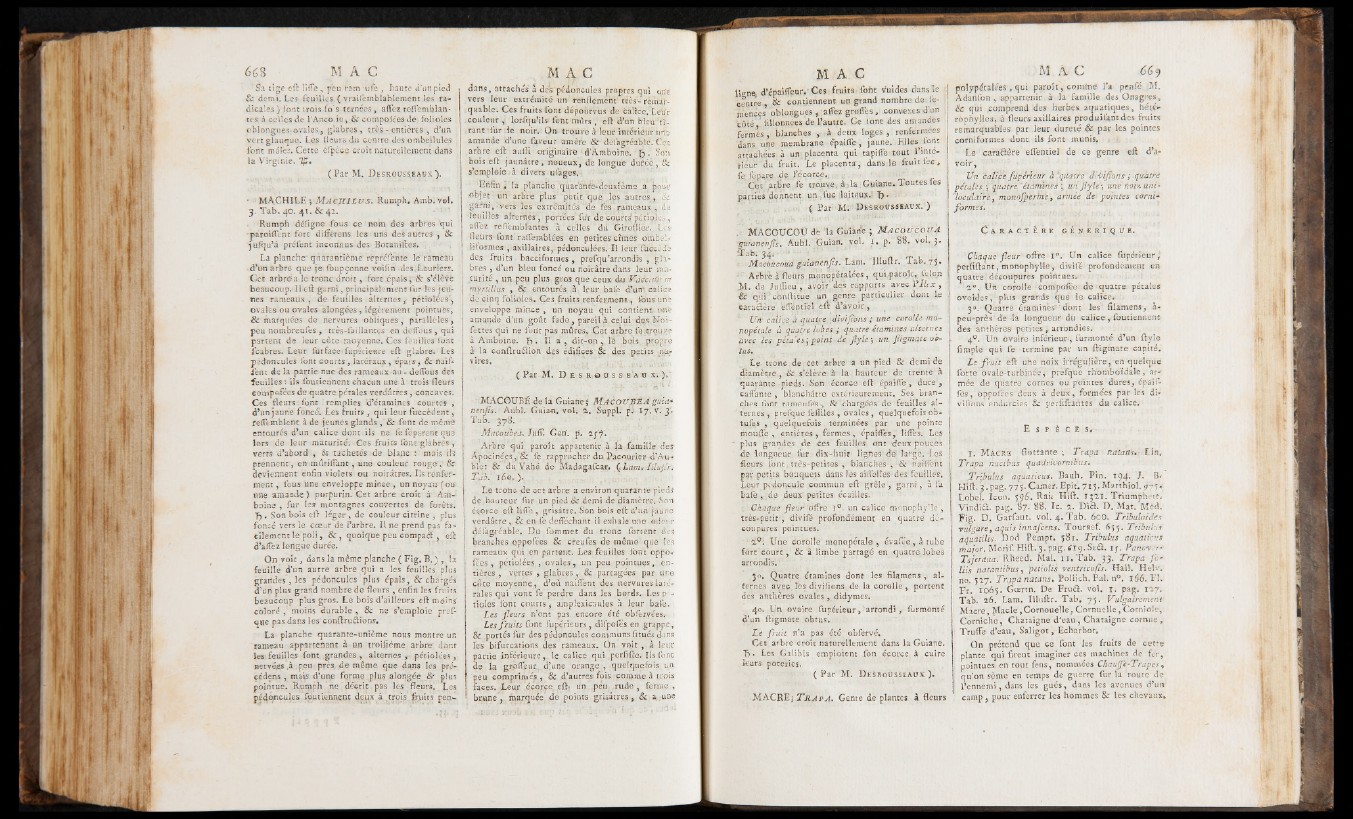 668 M A C
Sa tige est lisse, peu ram use, haute d'un pied
& demi. Les feuilles (vraisemblablement les ra-
dicales) sont trois fo's ternées, assez ressemblan-
tes à celles de l'Anco ie, & composées de folioles
oblongues-ovales, glabres, très-entières, d'un
vert glauque. Les fleurs du centre des ombellules
sont mâles. Cette espèce croît naturellement dans
la Virginie. ♃.
(Par M. DESROUSSEAUX).
MACHILE; MACHILUS. Rumph. Amb. vol.
3. Tab. 40. 41. & 42.
Rumph désigne sous ce nom des arbres qui
paroissent fort différens les uns des autres, &
jusqu'à présent inconnus des Botanistes.
La planche quarantième représente le rameau
d'un arbre que je soupçonne voisin des Lauriers.
Cet arbre a le tronc droit, fort épais, & s'élève
beaucoup. Il est garni, principalement sur les jeu-
nes rameaux, de feuilles alternes, pétiolées,
ovales ou ovales-alongées, légèrement pointues,
& marquées de nervures obliques, parallèles,
peu nombreuses, très-saillantes en dessous, qui
partent de leur côte moyenne. Ces feuilles sont
scabres. Leur surface supérieure est glabre. Les
pédoncules sont courts, latéraux, épais, & nais-
sent de la partie nue des rameaux au-dessous des
feuilles: ils soutiennent chacun une à trois fleurs
composées de quatre pétales verdâtres, concaves.
Ces fleurs sont remplies d'étamines courtes,
d'un jaune foncé. Les fruits, qui leur succèdent,
ressemblent à de jeunes glands, & sont de même
entourés d'un calice dont ils ne se séparent que
lors de leur maturité. Ces fruits sont glabres,
verts d'abord, & tachetés de blanc: mais ils
prennent, en mûrissant, une couleur rouge, &
deviennent enfin violets ou noirâtres. Ils renfer-
ment, sous une enveloppe mince, un noyau (ou
une amande) purpurin. Cet arbre croît à Am-
boine, sur les montagnes couvertes de forêts.
♄. Son bois est léger, de couleur citrine, plus
foncé vers le cœur de l'arbre. Il ne prend pas fa-
cilement le poli, &, quoique peu compact, est
d'assez longue durée.
On voit, dans la même planche (Fig. B,) la
feuille d'un autre arbre qui a les feuilles plus
grandes, les pédoncules plus épais, & chargés
d'un plus grand nombre de fleurs, enfin les fruits
beaucoup plus gros. Le bois d'ailleurs est moins
coloré, moins durable, & ne s'emploie pres-
que pas dans les constructions.
La planche quarante-unième nous montre un
rameau appartenant à un troisième arbre dont
les feuilles sont grandes, alternes, pétiolées,
nervées à peu près de même que dans les pré-
cédens, mais d'une forme plus alongée & plus
pointue. Rumph ne décrit pas les fleurs. Les
pédoncules soutiennent deux à trois fruits pen-
M A C
dans, attachés à des pédoncules propres qui ont
vers leur extrémité un renflement très-remar-
quable. Ces fruits sont dépourvus de calice. Leur
couleur, lorsqu'ils sont mûrs, est d'un bleu ti-
rant sur le noir. On trouve à leur intérieur une
amande d'une saveur amère & désagréable. Cet
arbre est aussi originaire d'Amboine. ♄. Son
bois est jaunâtre, noueux, de longue durée, &
s'emploie à divers usages.
Enfin, la planche quarante-deuxième a pour
objet un arbre plus petit que les autres, &
garni, vers les extrémités de ses rameaux, de
feuilles alternes, portées sur de courts pétioles,
assez ressemblantes à celles du Giroflier. Les
fleurs sont rassemblées en petites cimes ombel-
liformes, axillaires, pédonculées. Il leur succède
des fruits bacciformes, presqu'arrondis, gla-
bres, d'un bleu foncé ou noirâtre dans leur ma-
turité, un peu plus gros que ceux du Vaccinium
myrtillus, & entourés à leur base d'un calice
de cinq folioles. Ces fruits renferment, sous une
enveloppe mince, un noyau qui contient une
amande d'un goût fade, pareil à celui des Noi-
settes qui ne sont pas mûres. Cet arbre se trouve
à Amboine. ♄. Il a, dit-on, le bois propre
à la construction des édifices & des petits na-
vires.
(Par M. DESROUSSEAUX.)
MACOUBÉ de la Guiane; MACOUBEA guia-
nensis. Aubl. Guian. vol. 2. Suppl. p. 17. v. 3.
Tab. 378.
Macoubea. Juss. Gen. p. 257.
Arbre qui paroît appartenir à la famille des
Apocinées, & se rapprocher du Pacourier d'Au-
blet & du Vahé de Madagascar. (Lam. Illustr.
Tab. 169.).
Le tronc de cet arbre a environ quarante pieds
de hauteur sur un pied & demi de diamètre. Son
écorce est lisse, grisâtre. Son bois est d'un jaune
verdâtre, & en se desséchant il exhale une odeur
désagréable. Du sommet du tronc sortent des
branches opposées & creuses de même que les
rameaux qui en partent. Les feuilles sont oppo-
sées, pétiolées, ovales, un peu pointues, en-
tières, vertes, glabres, & partagées par une
côte moyenne, d'où naissent des nervures laté-
rales qui vont se perdre dans les bords. Les pé-
tioles sont courts, amplexicaules à leur base.
Les fleurs n'ont pas encore été observées.
Les fruits sont supérieurs, disposés en grappe,
& portés sur des pédoncules communs situés dans
les bifurcations des rameaux. On voit, à leur
partie inférieure, le calice qui persiste. Ils sont
de la grosseur d'une orange, quelquefois un
peu comprimés, & d'autres fois comme à trois
faces. Leur écorce est un peu rude, ferme,
brune, marquée de points grisâtres, & a une
M A C
ligne d'épaisseur. Ces fruits sont vuides dans le
centre, & contiennent un grand nombre de se-
mences oblongues, assez grosses, convexes d'un
côté, sillonnées de l'autre. Ce sont des amandes
fermes, blanches, à deux loges, renfermées
dans une membrane épaisse, jaune. Elles sont
attachées à un placenta qui tapisse tout l'inté-
rieur du fruit. Le placenta, dans le fruit sec,
se sépare de l'écorce.
Cet arbre se trouve à la Guiane. Toutes ses
parties donnent un suc laiteux. ♄.
(Par M. DESROUSSEAUX.)
MACOUCOU de la Guiane; MACOUCOUA
guianensis. Aubl. Guian. vol. 1. p. 88. vol. 3.
Tab. 34.
Macoucoua guianensis. Lam. Illustr. Tab. 75.
Arbre à fleurs monopétalées, qui paroît, selon
M. de Jussieu, avoir des rapports avec l'Ilex,
& qui constitue un genre particulier dont le
caractère essentiel est d'avoir,
Un calice à quatre divisions; une corolle mo-
nopétale à quatre lobes; quatre étamines alternes
avec les pétales; point de style; un stigmate ob-
tus.
Le tronc de cet arbre a un pied & demi de
diamètre, & s'élève à la hauteur de trente à
quarante pieds. Son écorce est épaisse, dure,
cassante, blanchâtre extérieurement. Ses bran-
ches sont rameuses, & chargées de feuilles al-
ternes, presque sessiles, ovales, quelquefois ob-
tuses, quelquefois terminées par une pointe
mousse, entières, fermes, épaisses, lisses. Les
plus grandes de ces feuilles ont deux pouces
de longueur sur dix-huit lignes de large. Les
fleurs sont très-petites, blanches, & naissent
par petits bouquets dans les aisselles des feuilles.
Leur pédoncule commun est grêle, garni, à sa
base, de deux petites écailles.
Chaque fleur offre 1°. un calice monophylle,
très-petit, divisé profondément en quatre dé-
coupures pointues.
2°. Une corolle monopétale, évasée, à tube
fort court, & à limbe partagé en quatre lobes
arrondis.
3°. Quatre étamines dont les filamens, al-
ternes avec les divisions de la corolle, portent
des anthères ovales, didymes.
4°. Un ovaire supérieur, arrondi, surmonté
d'un stigmate obtus.
Le fruit n'a pas été observé.
Cet arbre croît naturellement dans la Guiane.
♄. Les Galibis emploient son écorce à cuire
leurs poteries.
(Par M. DESROUSSEAUX).
MACRE; TRAPA. Genre de plantes à fleurs
M A C 669
polypétalées, qui paroît, comme l'a pensé M.
Adanson, appartenir à la famille des Onagres,
& qui comprend des herbes aquatiques, hété-
rophylles, à fleurs axillaires produisant des fruits
remarquables par leur dureté & par les pointes
corniformes dont ils sont munis.
Le caractère essentiel de ce genre est d'a-
voir,
Un calice supérieur à quatre divisions; quatre
pétales; quatre étamines; un style; une noix uni-
loculaire, monosperme, armée de pointes corni-
formes.
CARACTÈRE GÉNÉRIQUE.
Chaque fleur offre 1°. Un calice supérieur,
persistant, monophylle, divisé profondément en
quatre découpures pointues.
2°. Un corolle composée de quatre pétales
ovoïdes, plus grands que le calice.
3°. Quatre étamines dont les filamens, à-
peu-près de la longueur du calice, soutiennent
des anthères petites, arrondies.
4°. Un ovaire inférieur, surmonté d'un style
simple qui se termine par un stigmate capité.
Le fruit est une noix irrégulière, en quelque
sorte ovale-turbinée, presque rhomboïdale, ar-
mée de quatre cornes ou pointes dures, épais-
ses, opposées deux à deux, formées par les di-
visions endurcies & persistantes du calice.
ESPÈCES.
1. MACRE flottante; Trapa natans. Lin.
Trapa nucibus quadricornibus.
Tribulus aquaticus. Bauh. Pin. 194. J. B.
Hist. 3. pag. 775. Camer. Epit. 715. Matthiol. 671.
Lobel. Icon. 596. Raii Hist. 1321. Triumphett.
Vindict. pag. 87. 88. Ic. 2. Dict. D. Mat. Méd.
Fig. D. Garsaut. vol. 4. Tab. 600. Tribuloides
vulgare, aquis innascens. Tournef. 655. Tribulus
aquatilis. Dod Pempt. 581. Tribulus aquaticus
major. Moris. Hist. 3. pag. 619. Sect. 15. Panover-
Tsjerana. Rheed. Mal. 11. Tab. 33. Trapa fo-
liis natantibus, petiolis ventricosis. Hall. Helv.
no. 527. Trapa natans. Pollich. Pal. n°. 166. Fl.
Fr. 1065. Gærtn. De Fruct. vol. 1. pag. 127.
Tab. 26. Lam. Illustr. Tab. 75. Vulgairement
Macre, Macle, Cornouelle, Cornuelle, Corniole,
Corniche, Chataigne d'eau, Chataigne cornue,
Truffe d'eau, Saligot, Echarbot.
On prétend que ce sont les fruits de cette
plante qui firent imaginer ces machines de fer,
pointues en tout sens, nommées Chausse-Trapes,
qu'on sème en temps de guerre sur la route de
l'ennemi, dans les gués, dans les avenues d'un
camp, pour enferrer les hommes & les chevaux.